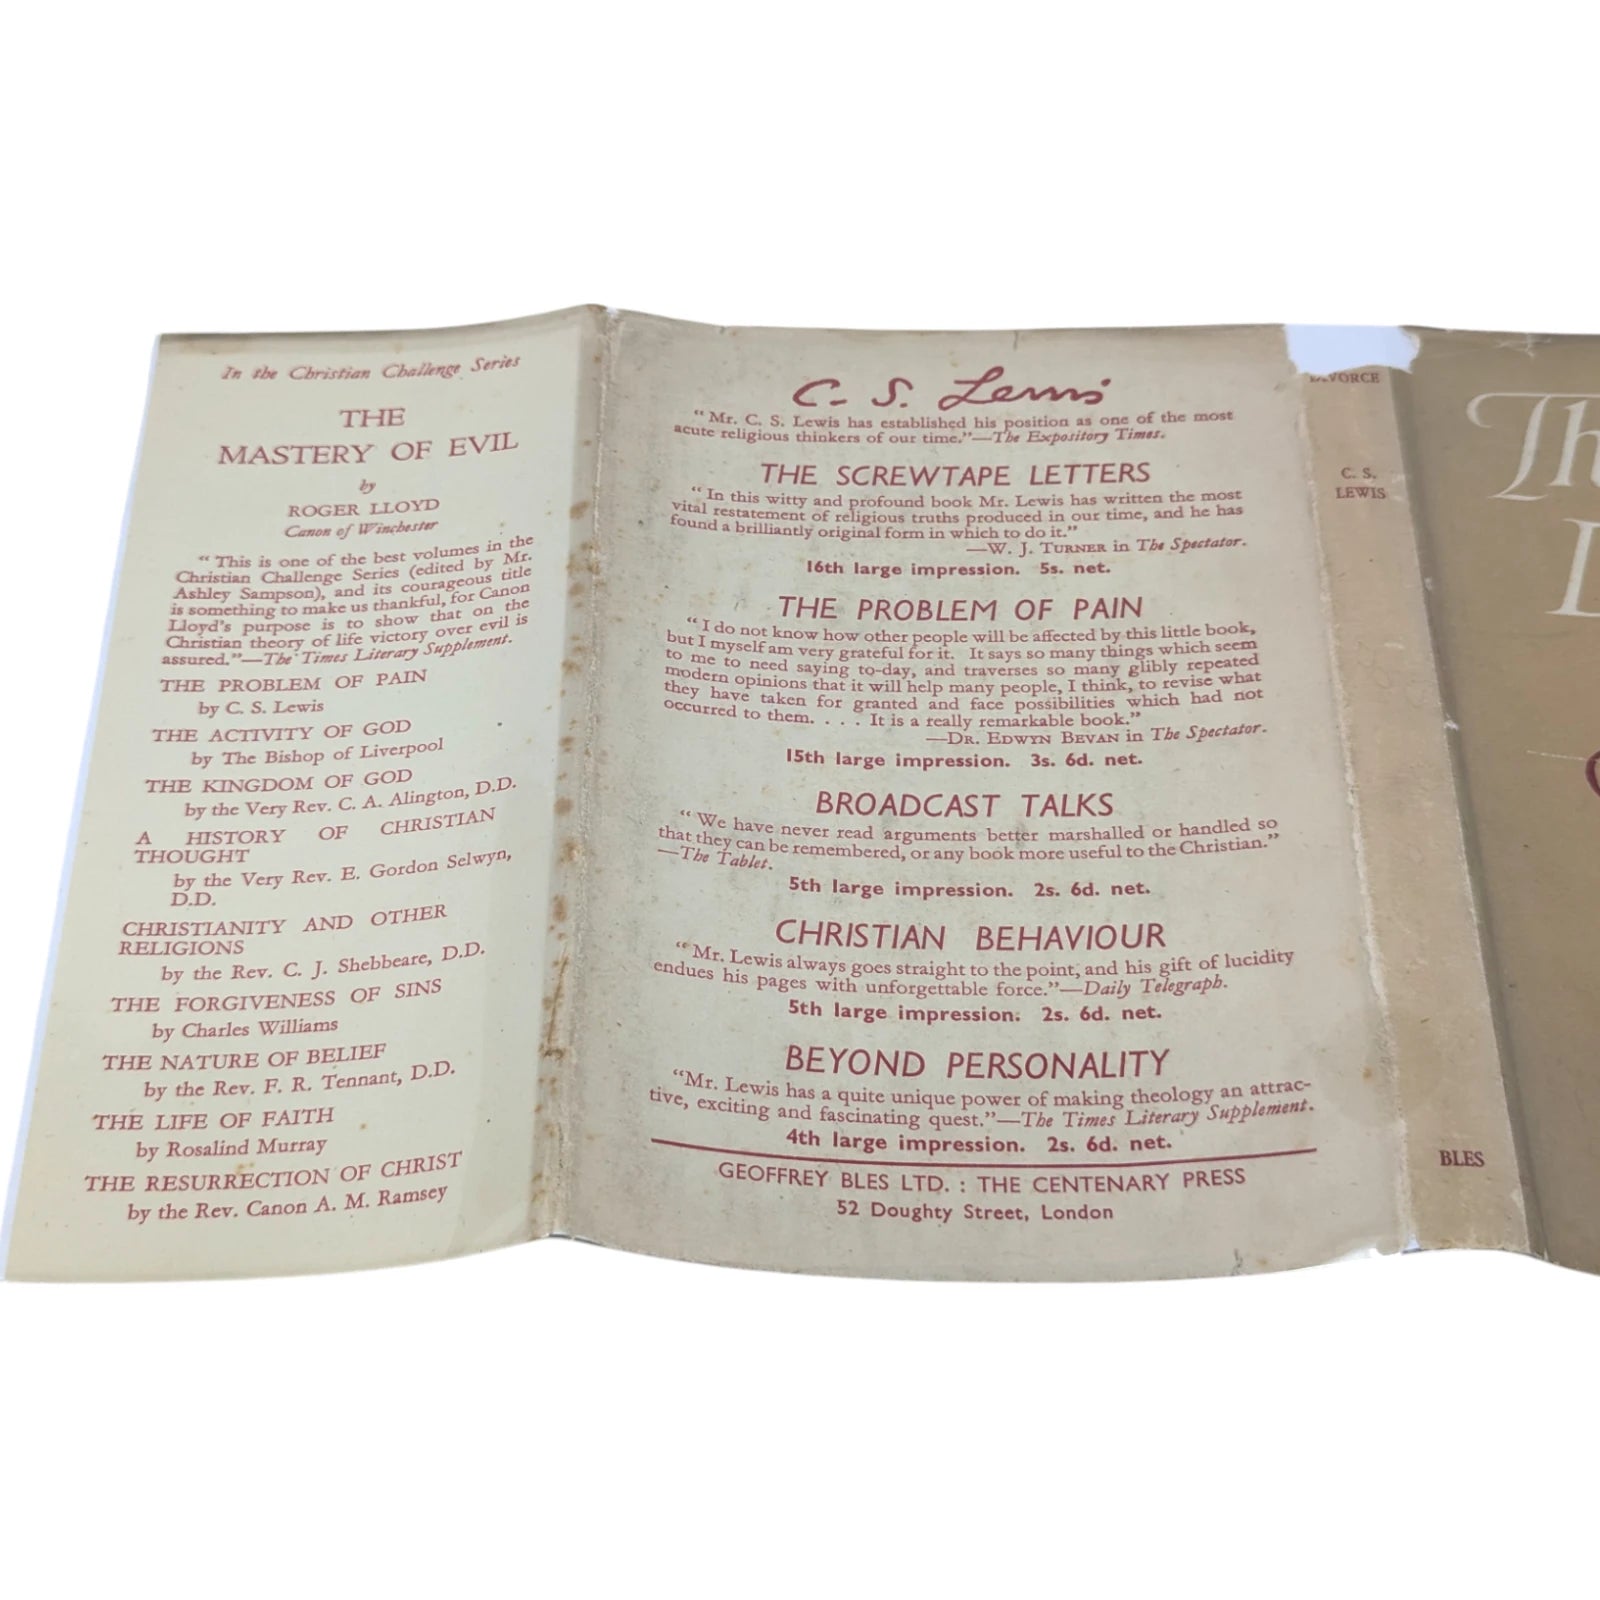 In the Christian Challenge Series
THE
MASTERY OF EVIL
by
ROGER LLOYD
Canon of Winchester
“This is one of the best volumes in the
Christian Challenge Series (edited by Mr.
Ashley Sampson), and its courageous title
is something to make us thankful, for Canon
Lloyd’s purpose is to show that on the
Christian theory of life victory over evil is
assured.”—The Times Literary Supplement.
THE PROBLEM OF PAIN
by C. S. Lewis
THE ACTIVITY OF GOD
by The Bishop of Liverpool
THE KINGDOM OF GOD
by the Very Rev. C. A. Alington, D.D.
A HISTORY OF CHRISTIAN
THOUGHT
by the Very Rev. E. Gordon Selwyn,
D.D.
CHRISTIANITY AND OTHER
RELIGIONS
by the Rev. C. J. Shebbeare, D.D.
THE FORGIVENESS OF SINS
by Charles Williams
THE NATURE OF BELIEF
by the Rev. F. R. Tennant, D.D.
THE LIFE OF FAITH
by Rosalind Murray
THE RESURRECTION OF CHRIST
by the Rev. Canon A. M. Ramsey
C. S. Lewis
“Mr. C. S. Lewis has established his position as one of the most
acute religious thinkers of our time.”—The Expository Times.
THE SCREWTAPE LETTERS
“In this witty and profound book Mr. Lewis has written the most
vital restatement of religious truths produced in our time, and he has
found a brilliantly original form in which to do it.”
—W. J. TURNER in The Spectator.
16th large impression. 5s. net.
THE PROBLEM OF PAIN
“I do not know how other people will be affected by this little book,
but I myself am very grateful for it. It says so many things which seem
to me to need saying to-day, and traverses so many glibly repeated
modern opinions that it will help many people, I think, to revise what
they have taken for granted and face possibilities which had not
occurred to them. . . . It is a really remarkable book.”
—DR. EDWYN BEVAN in The Spectator.
15th large impression. 3s. 6d. net.
BROADCAST TALKS
“We have never read arguments better marshalled or handled so
that they can be remembered, or any book more useful to the Christian.”
—The Tablet.
5th large impression. 2s. 6d. net.
CHRISTIAN BEHAVIOUR
“Mr. Lewis always goes straight to the point, and his gift of lucidity
endues his pages with unforgettable force.”—Daily Telegraph.
5th large impression. 2s. 6d. net.
BEYOND PERSONALITY
“Mr. Lewis has a quite unique power of making theology an attrac-
tive, exciting and fascinating quest.”—The Times Literary Supplement.
4th large impression. 2s. 6d. net.
GEOFFREY BLES LTD. : THE CENTENARY PRESS
52 Doughty Street, London
DIVORCE
C. S.
LEWIS
BLES
Th